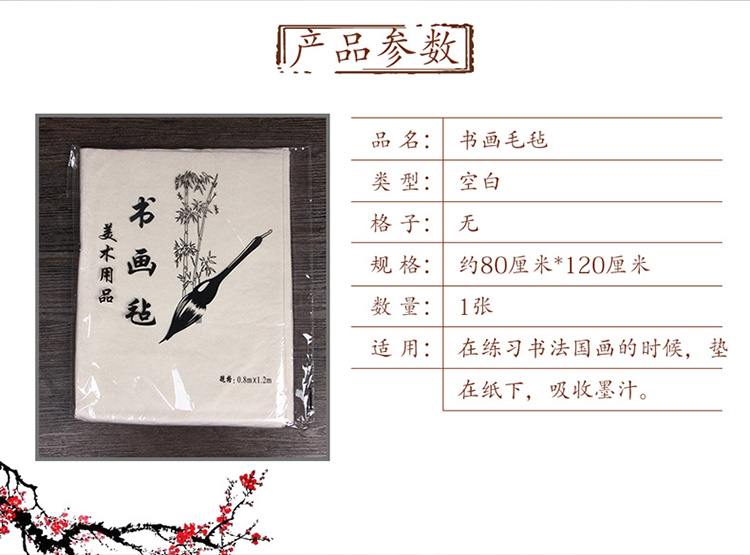 产品参数
书画毡
美术用品
规格：0.8m×1.2m
品名： 书画毛毡
类型： 空白
格子： 无
规格： 约80厘米*120厘米
数量： 1张
适用： 在练习书法国画的时候，垫
在纸下，吸收墨汁。